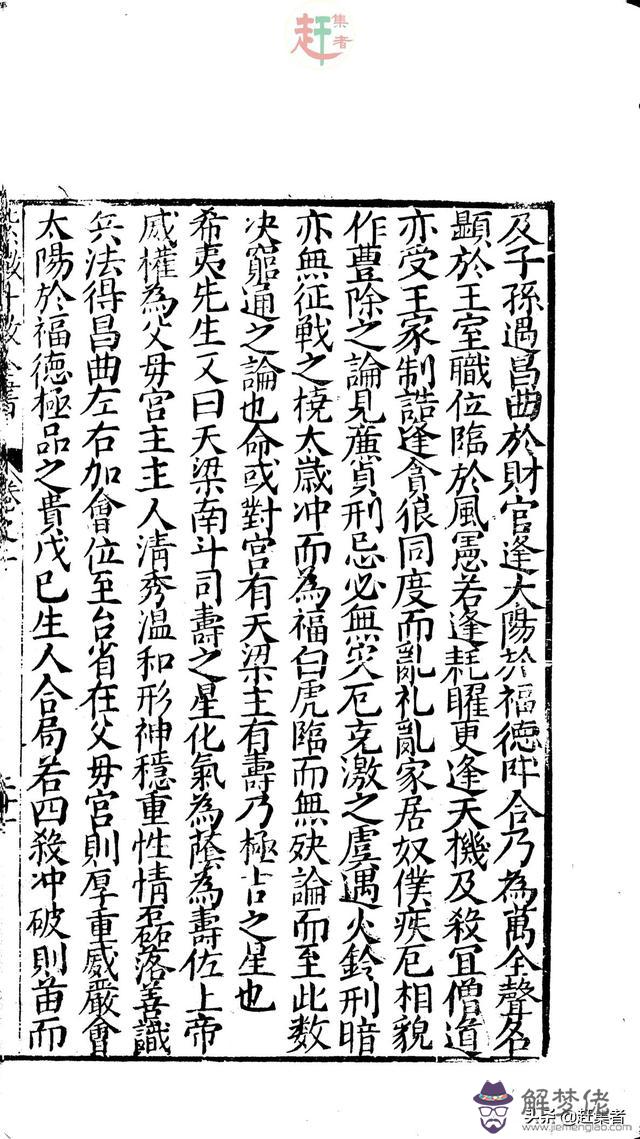 赶集者
及子孫遇昌曲於財官逢太陽於福德三合乃為萬全聲名
顯於王室職位臨於風憲若逢耗曜更逢天機及殺宜僧道
亦受王家制誥逢貪狼同度而亂礼亂家居奴僕疾厄相貌
作豊除之論見亷貞刑忌必無災厄克激之虞遇火鈴刑暗
亦無征戦之橈太歳冲而為福白虎臨而無殃論而至此数
决窮通之論也命或對宮有天梁主有壽乃極吉之星也
希夷先生又曰天梁南斗司壽之星化氣為䕃為壽佐上帝
威權為父母宮主主人清秀温和形神穩重性情磊落善識
兵法得昌曲左右加會位至台省在父母宮則厚重威嚴會
太陽於福德極品之貴戊己生人合局若四殺冲破則苗而
解梦佬
www.jiemenglao.com
头条@赶集者